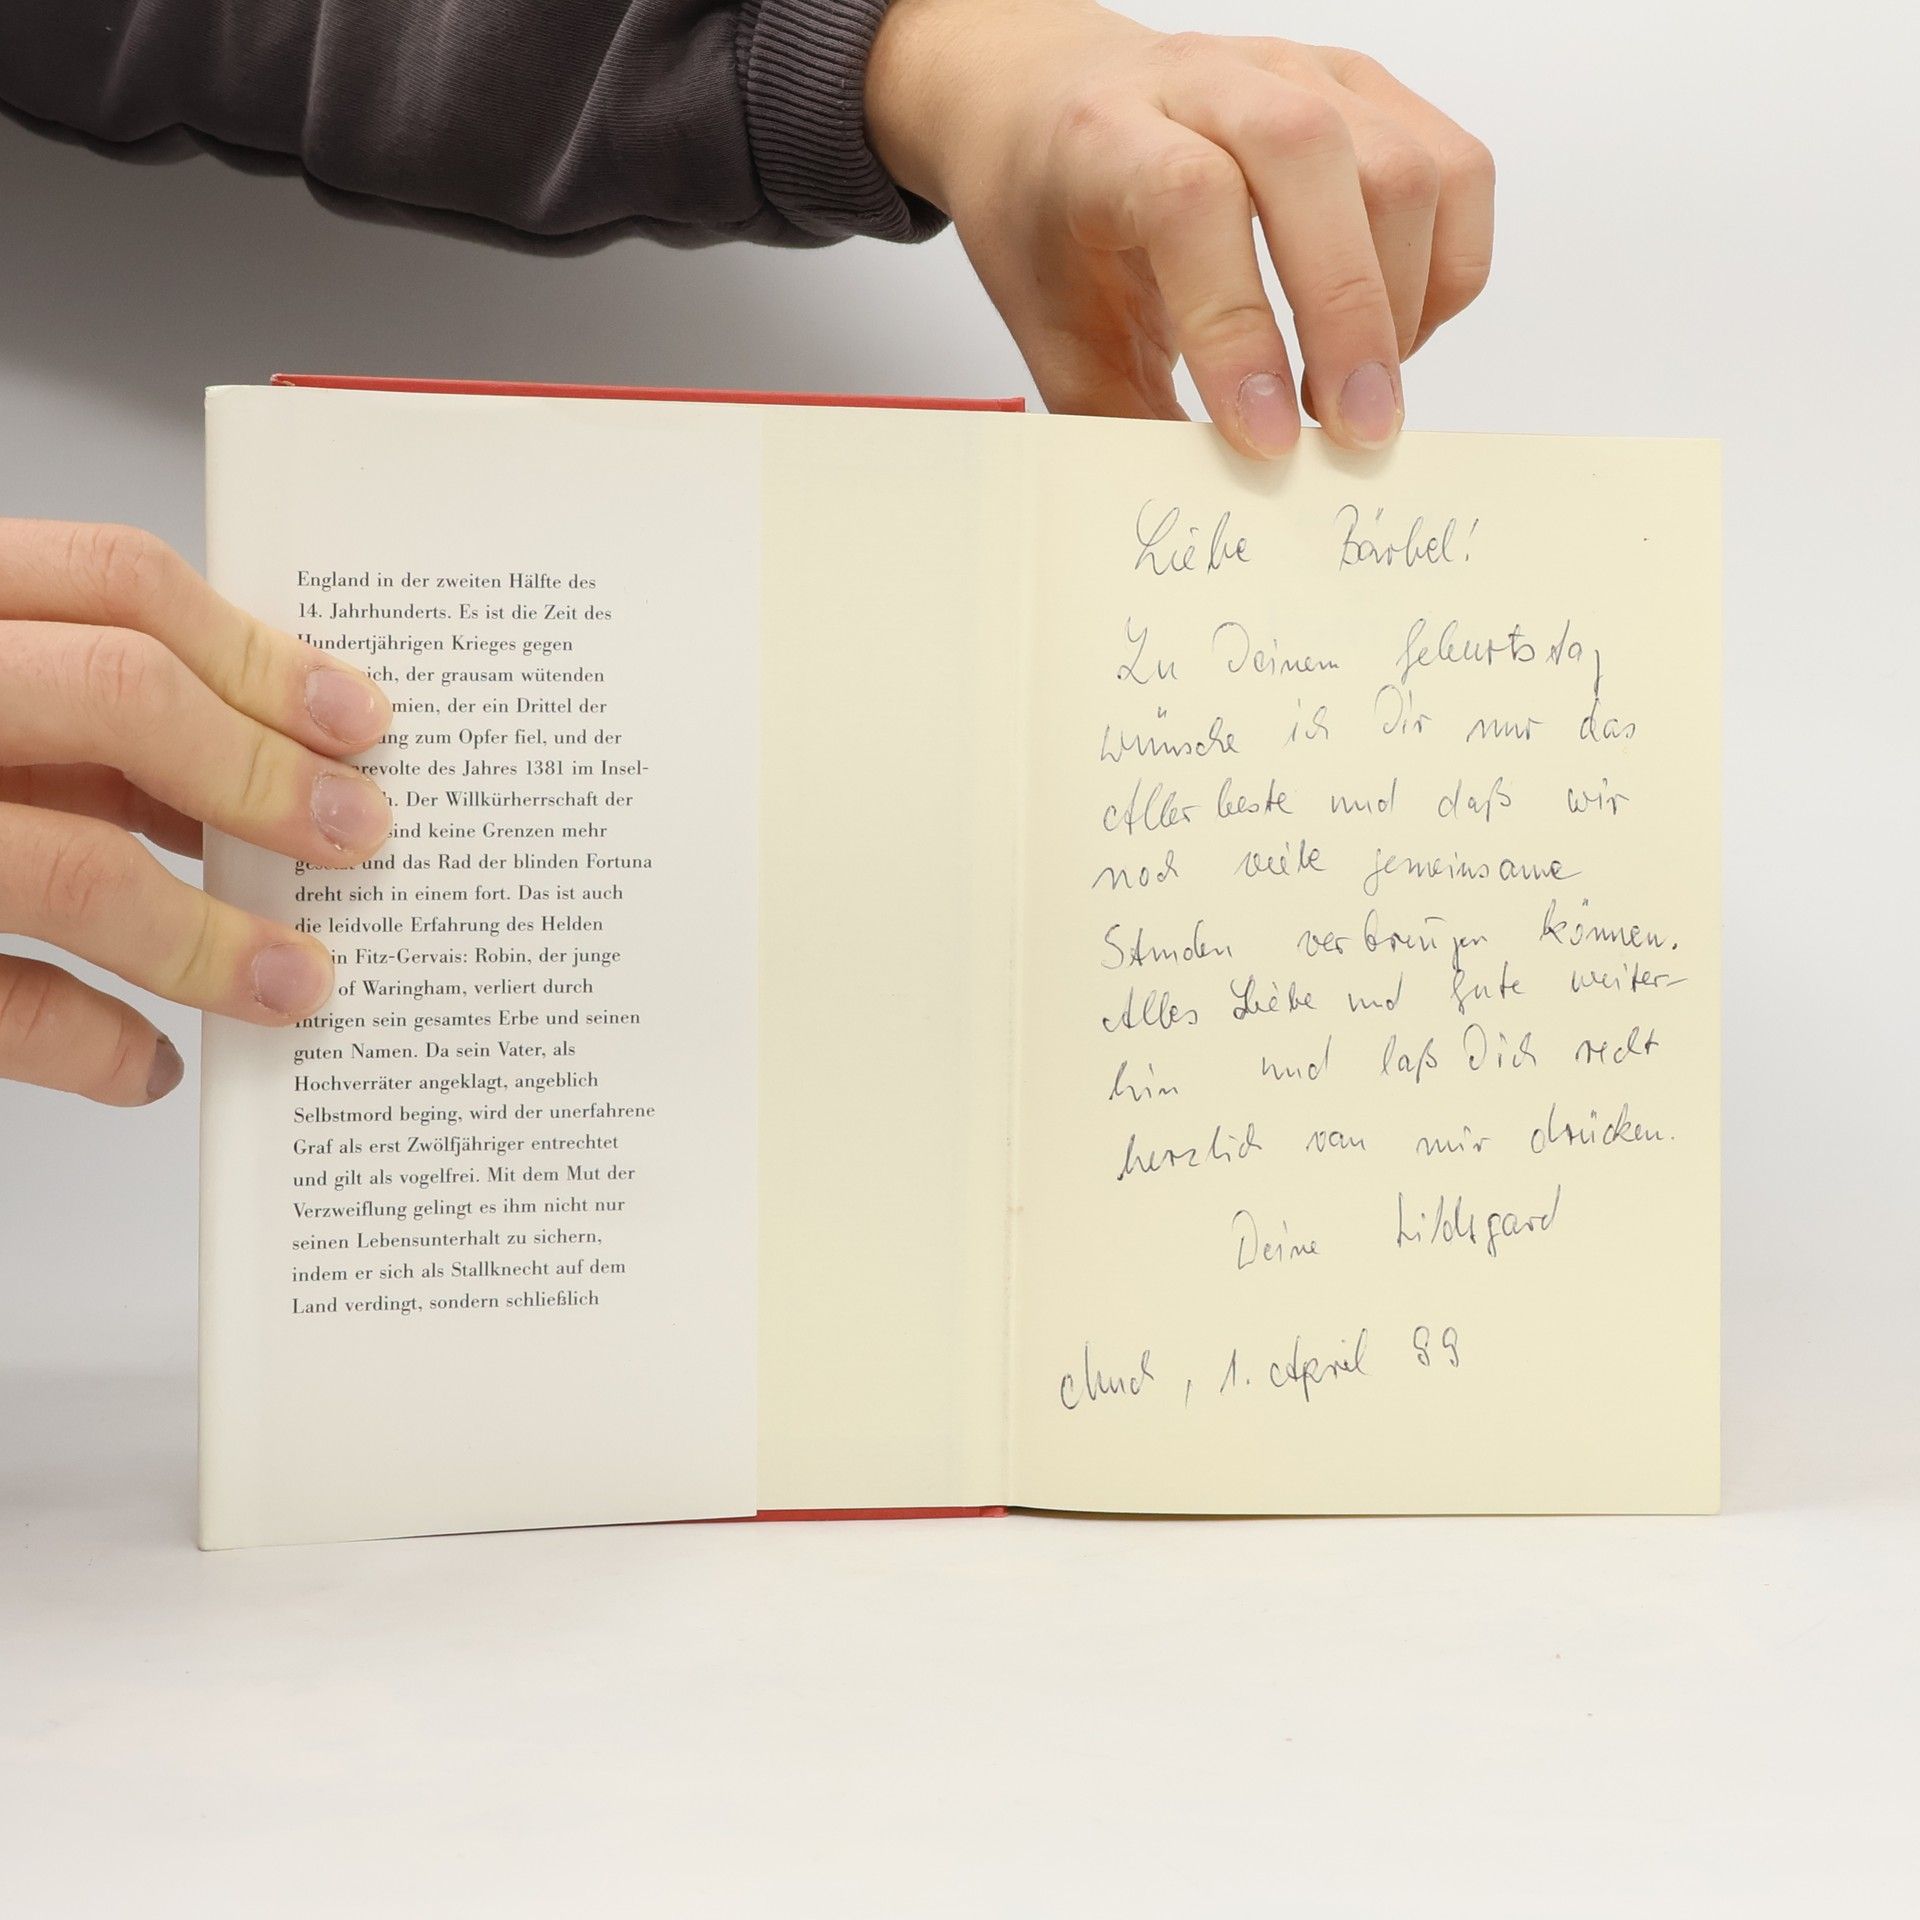 England in der zweiten Hälfte des
14. Jahrhunderts. Es ist die Zeit des
Hundertjährigen Krieges gegen
ich, der grausam wütenden
mien, der ein Drittel der
ang zum Opfer fiel, und der
revolte des Jahres 1381 im Insel-
h. Der Willkürherrschaft der
sind keine Grenzen mehr
gesetzt und das Rad der blinden Fortuna
dreht sich in einem fort. Das ist auch
die leidvolle Erfahrung des Helden
in Fitz-Gervais: Robin, der junge
of Waringham, verliert durch
Intrigen sein gesamtes Erbe und seinen
guten Namen. Da sein Vater, als
Hochverräter angeklagt, angeblich
Selbstmord beging, wird der unerfahrene
Graf als erst Zwölfjähriger entrechtet
und gilt als vogelfrei. Mit dem Mut der
Verzweiflung gelingt es ihm nicht nur
seinen Lebensunterhalt zu sichern,
indem er sich als Stallknecht auf dem
Land verdingt, sondern schließlich
Liebe Bärbel!
Zu Deinem Geburtstag
wünsche ich Dir nur das
Allerbeste und daß wir
noch viele gemeinsame
Stunden verbringen können.
Alles Liebe und Gute weiter-
hin und laß Dich recht
herzlich von mir drücken.
Deine Hildegard
, 1. April 99